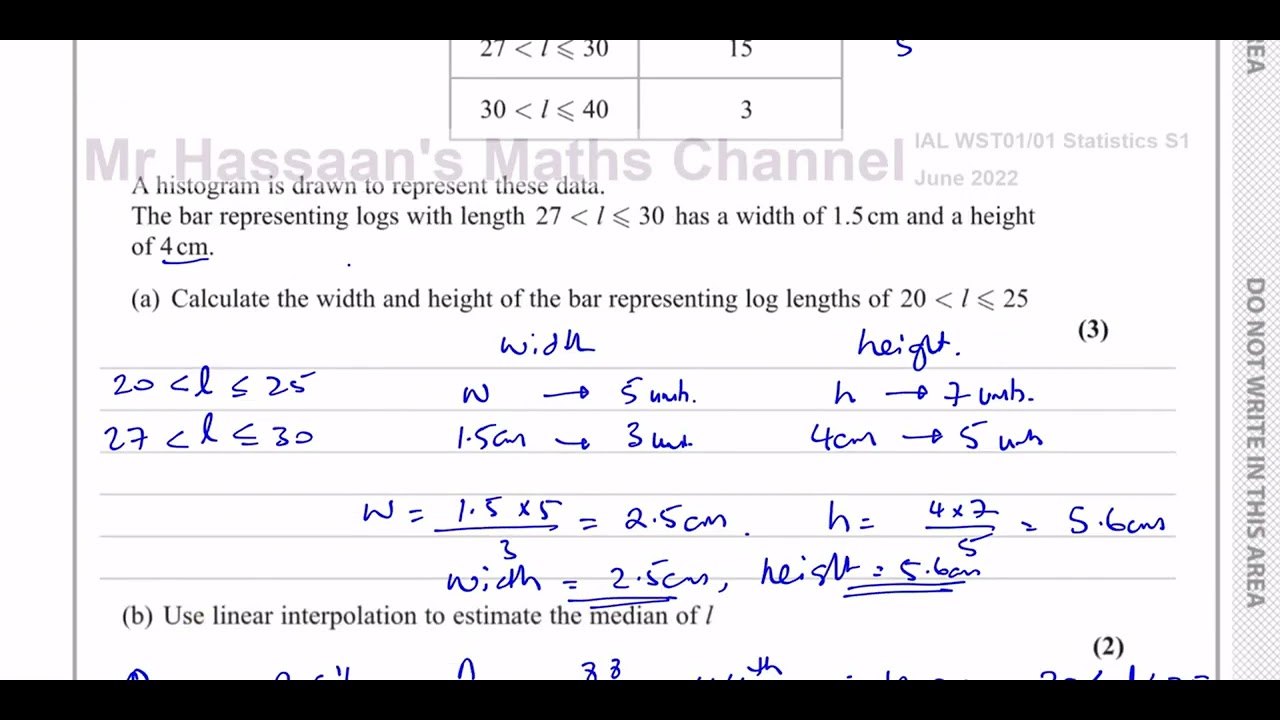 27 < l ⩽ 30 15 5
30 < l ⩽ 40 3
Mr Hassaan's Maths Channel
IAL WST01/01 Statistics S1
June 2022
A histogram is drawn to represent these data.
The bar representing logs with length 27 < l ⩽ 30 has a width of 1.5 cm and a height
of 4 cm.
(a) Calculate the width and height of the bar representing log lengths of 20 < l ⩽ 25
(3)
width height.
20 < l ≤ 25 w → 5 units. h → 7 units.
27 < l ≤ 30 1.5cm → 3 units. 4cm → 5 units
w = 1.5 × 5 / 3 = 2.5cm. h = 4 × 7 / 5 = 5.6cms
width = 2.5cm, height = 5.6cm
(b) Use linear interpolation to estimate the median of l
(2)
88 th
EA
DO NOT WRITE IN THIS AREA